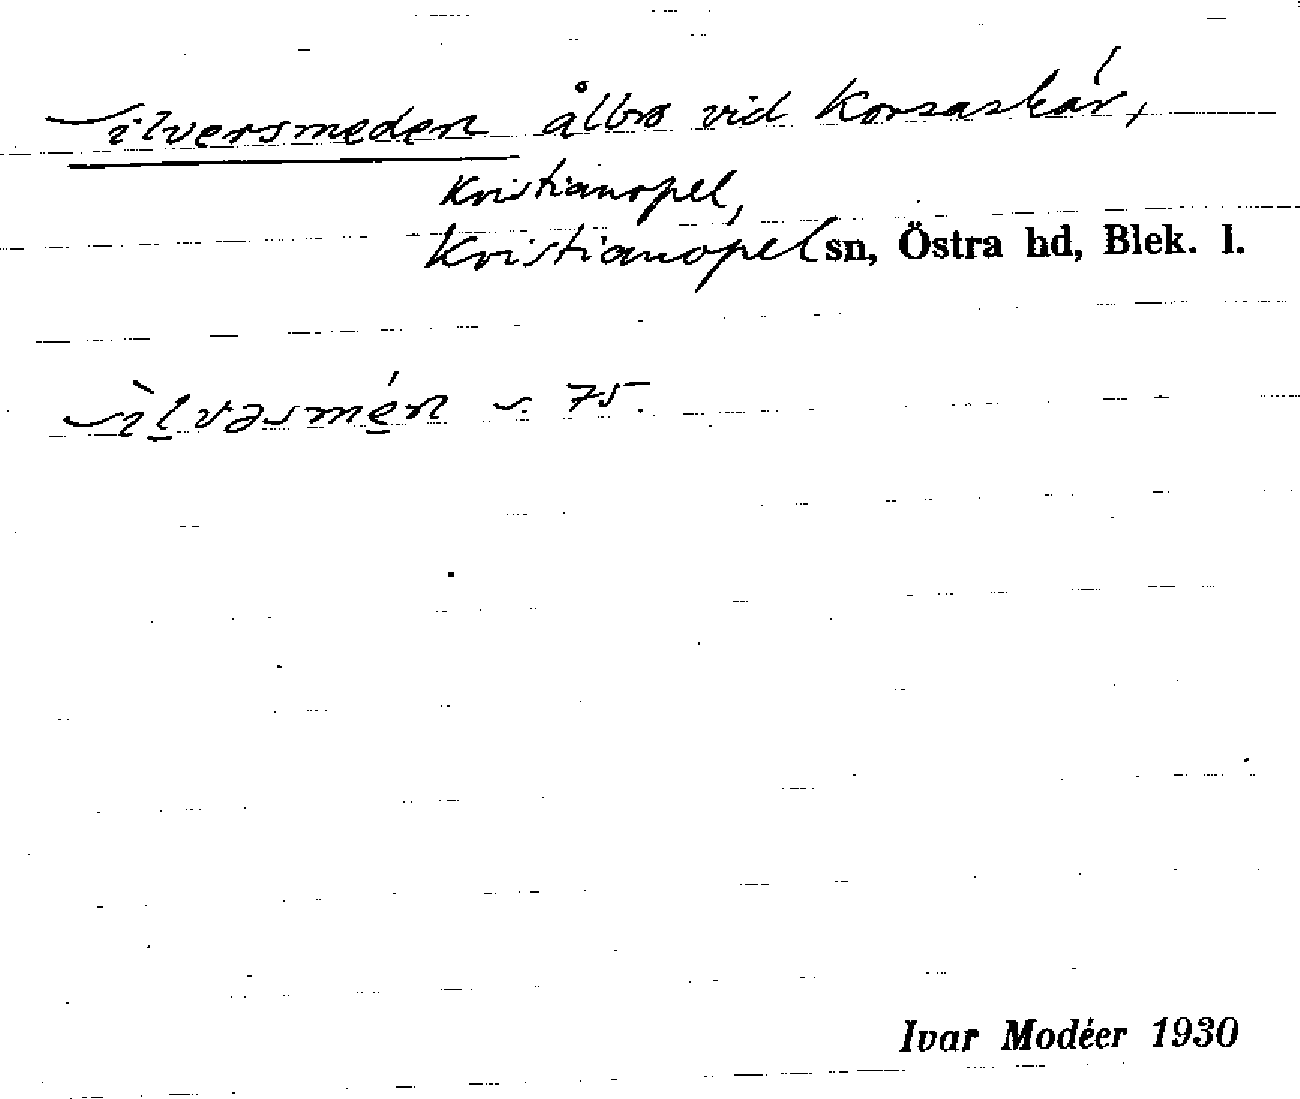 Silversmeden ålbro vid Korsaskär,
Kristianopel,
Kristianopel sn, Östra hd, Blek. l.
sìlvəsmén s. 75.
Ivar Modéer 1930